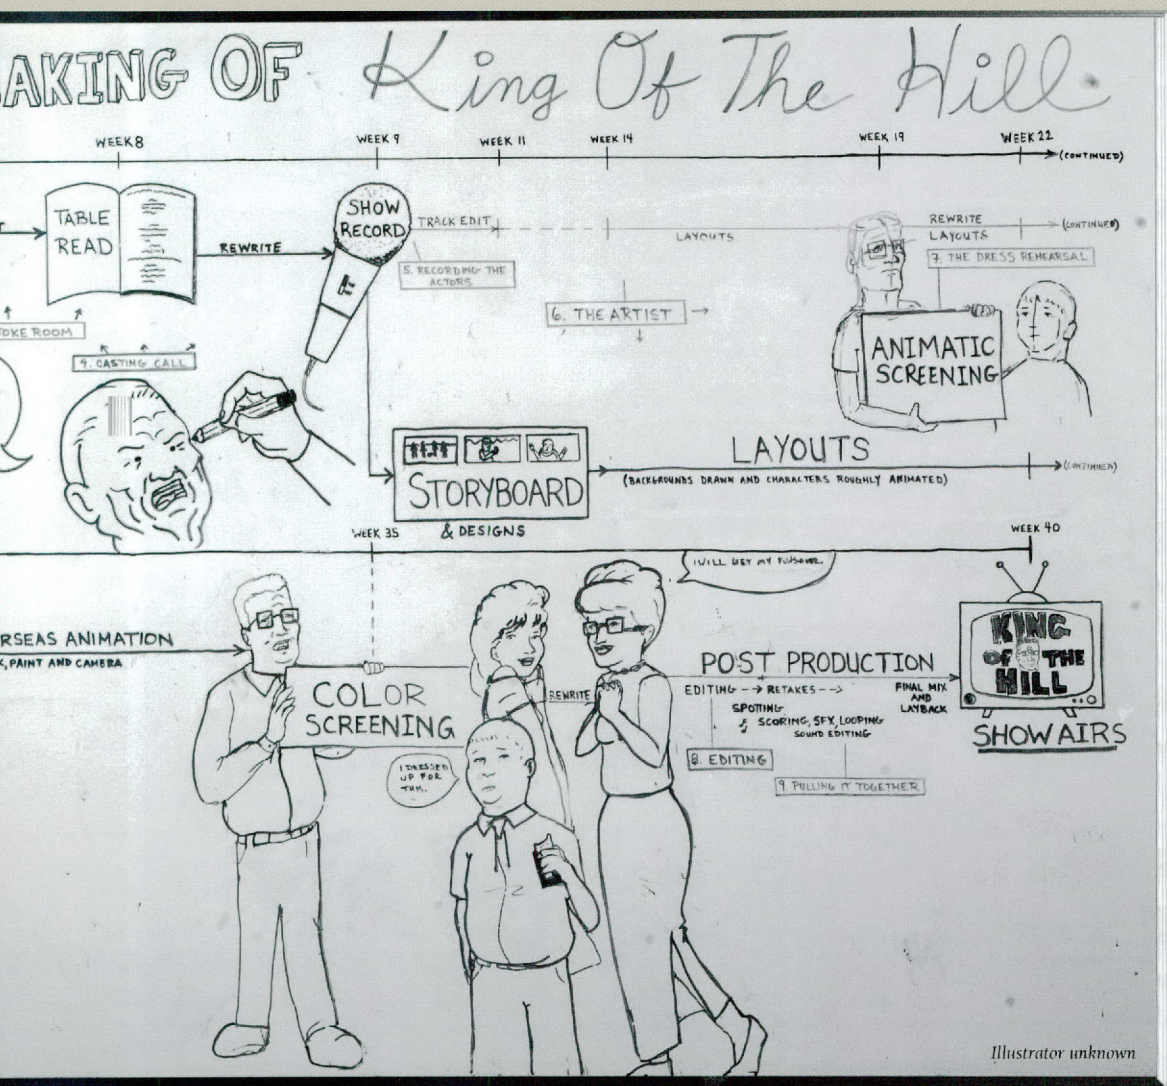 AKING OF King Of The Hill
WEEK 8
WEEK 9
WEEK 11
WEEK 14
WEEK 19
WEEK 22
(CONTINUED)
TABLE
READ
REWRITE
SHOW
RECORD
TRACK EDIT
LAYOUTS
REWRITE
LAYOUTS
(CONTINUED)
5. RECORDING THE
ACTORS
7. THE DRESS REHEARSAL
6. THE ARTIST
OKE ROOM
4. CASTING CALL
ANIMATIC
SCREENING
STORYBOARD
& DESIGNS
LAYOUTS
(BACKGROUNDS DRAWN AND CHARACTERS ROUGHLY ANIMATED)
(CONTINUED)
WEEK 35
WEEK 40
I WILL GET MY
RSEAS ANIMATION
, PAINT AND CAMERA
COLOR
SCREENING
REWRITE
I DRESSED
UP FOR
THIS.
POST PRODUCTION
EDITING --> RETAKES -->
SPOTTING
SCORING, SFX, LOOPING
SOUND EDITING
FINAL MIX
AND
LAYBACK
8. EDITING
9. PULLING IT TOGETHER
KING
OF THE
HILL
SHOW AIRS
Illustrator unknown